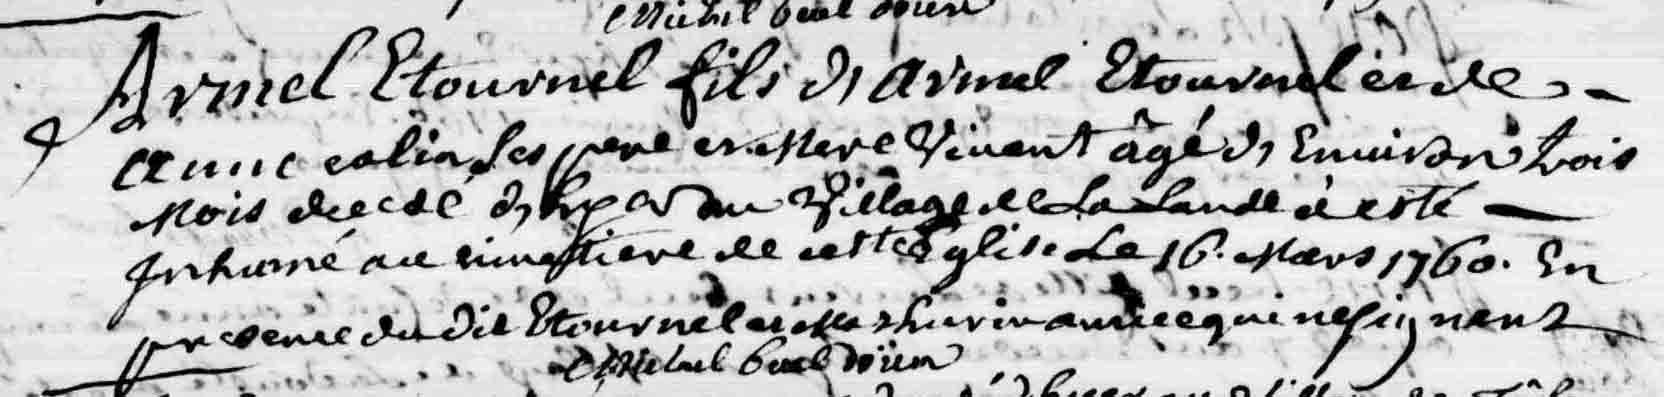 Michel buel doïen
Armel Etournel fils de armel Etournel et de
anne colin ses pere et Mere Vivant âgé de Environ trois
Mois decedé d'hyer au Village de La Lande à esté
Inhumé au cimetiere de cette Eglise Le 16. Mars 1760. En
presence du dit Etournel et qui ne signent
Michel buel doïen